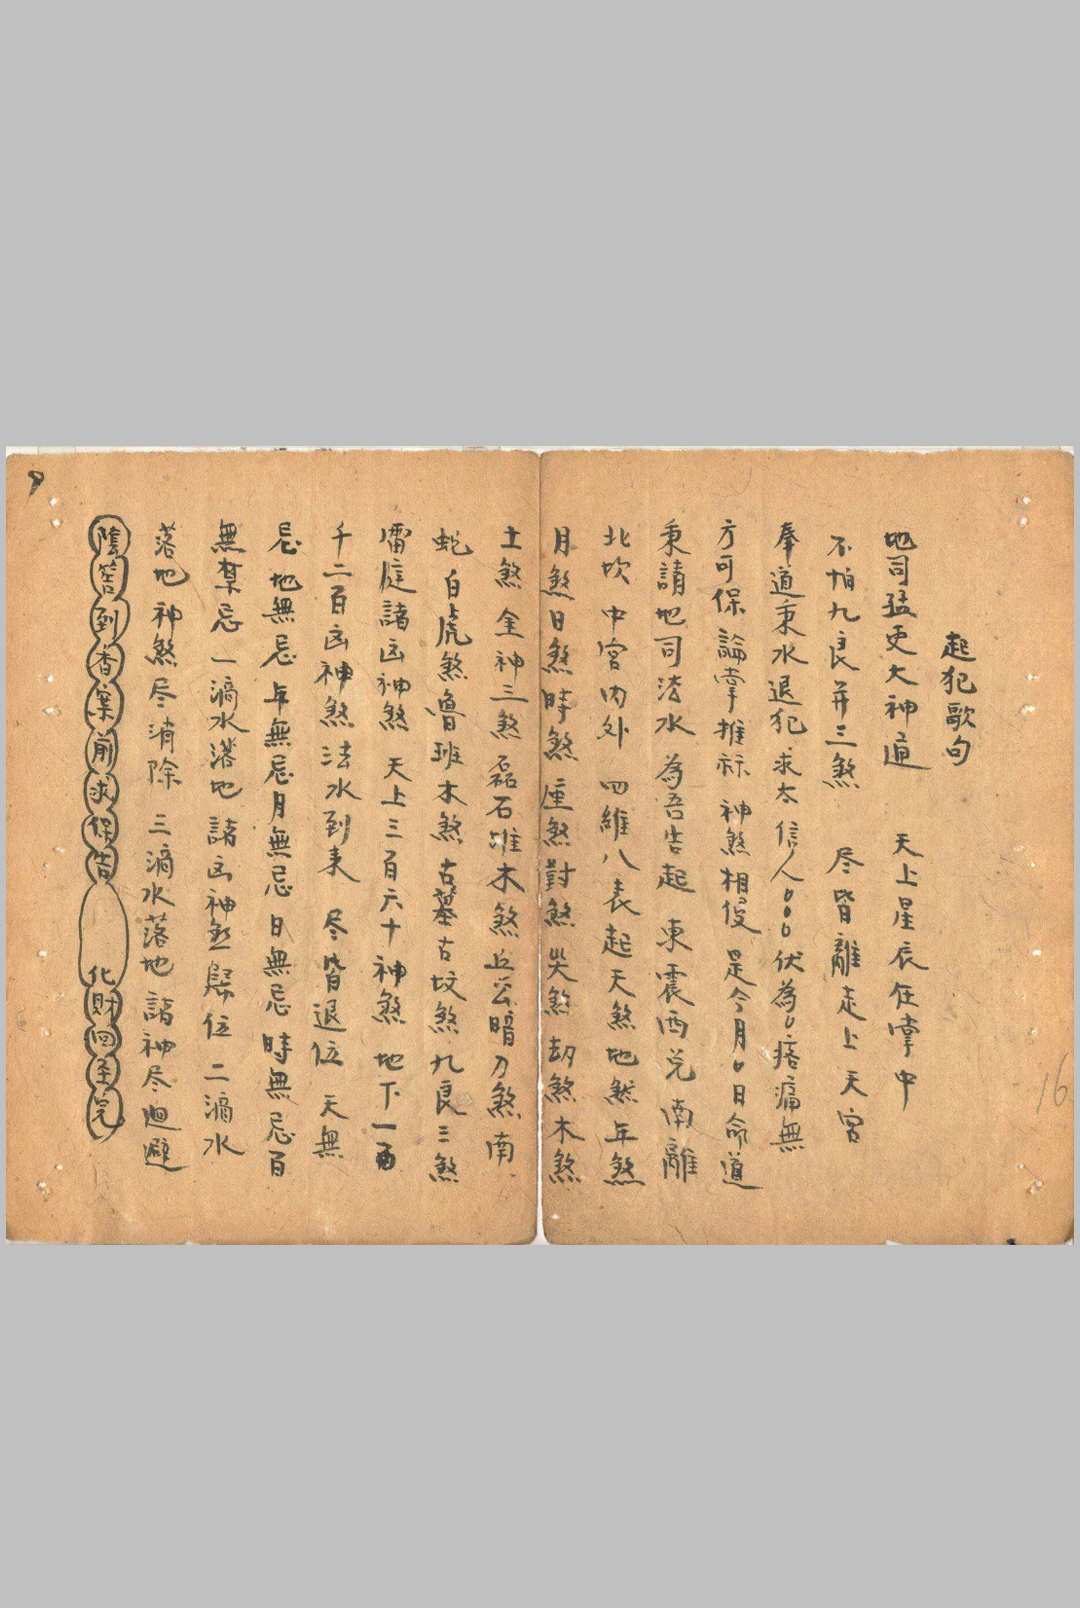 起犯歌句
地司孟吏大神通 天上星辰在掌中
不怕九良并三煞 尽皆離走上天宮
奉道秉水退犯求太信人000伏為0痞痛無
方可保論掌推 神煞相侵是今月0日命道
秉請地司法水為吾告起東震西兌南離
北坎中宮内外四維八表起天煞地煞年煞
月煞日煞時煞座煞對煞災煞劫煞木煞
土煞金神三煞磊石堆木煞丘公暗刀煞南
蛇白虎煞魯班木煞古墓古坟煞九良三煞
雷庭諸凶神煞天上三百六十神煞地下一
千二百凶神煞法水到来尽皆退位天無
忌地無忌年無忌月無忌日無忌時無忌百
無禁忌一滴水落地諸凶神煞歸位二滴水
落地神煞尽消除三滴水落地諸神尽迴避
陰筶到香案前求保告 化財回奎完
16